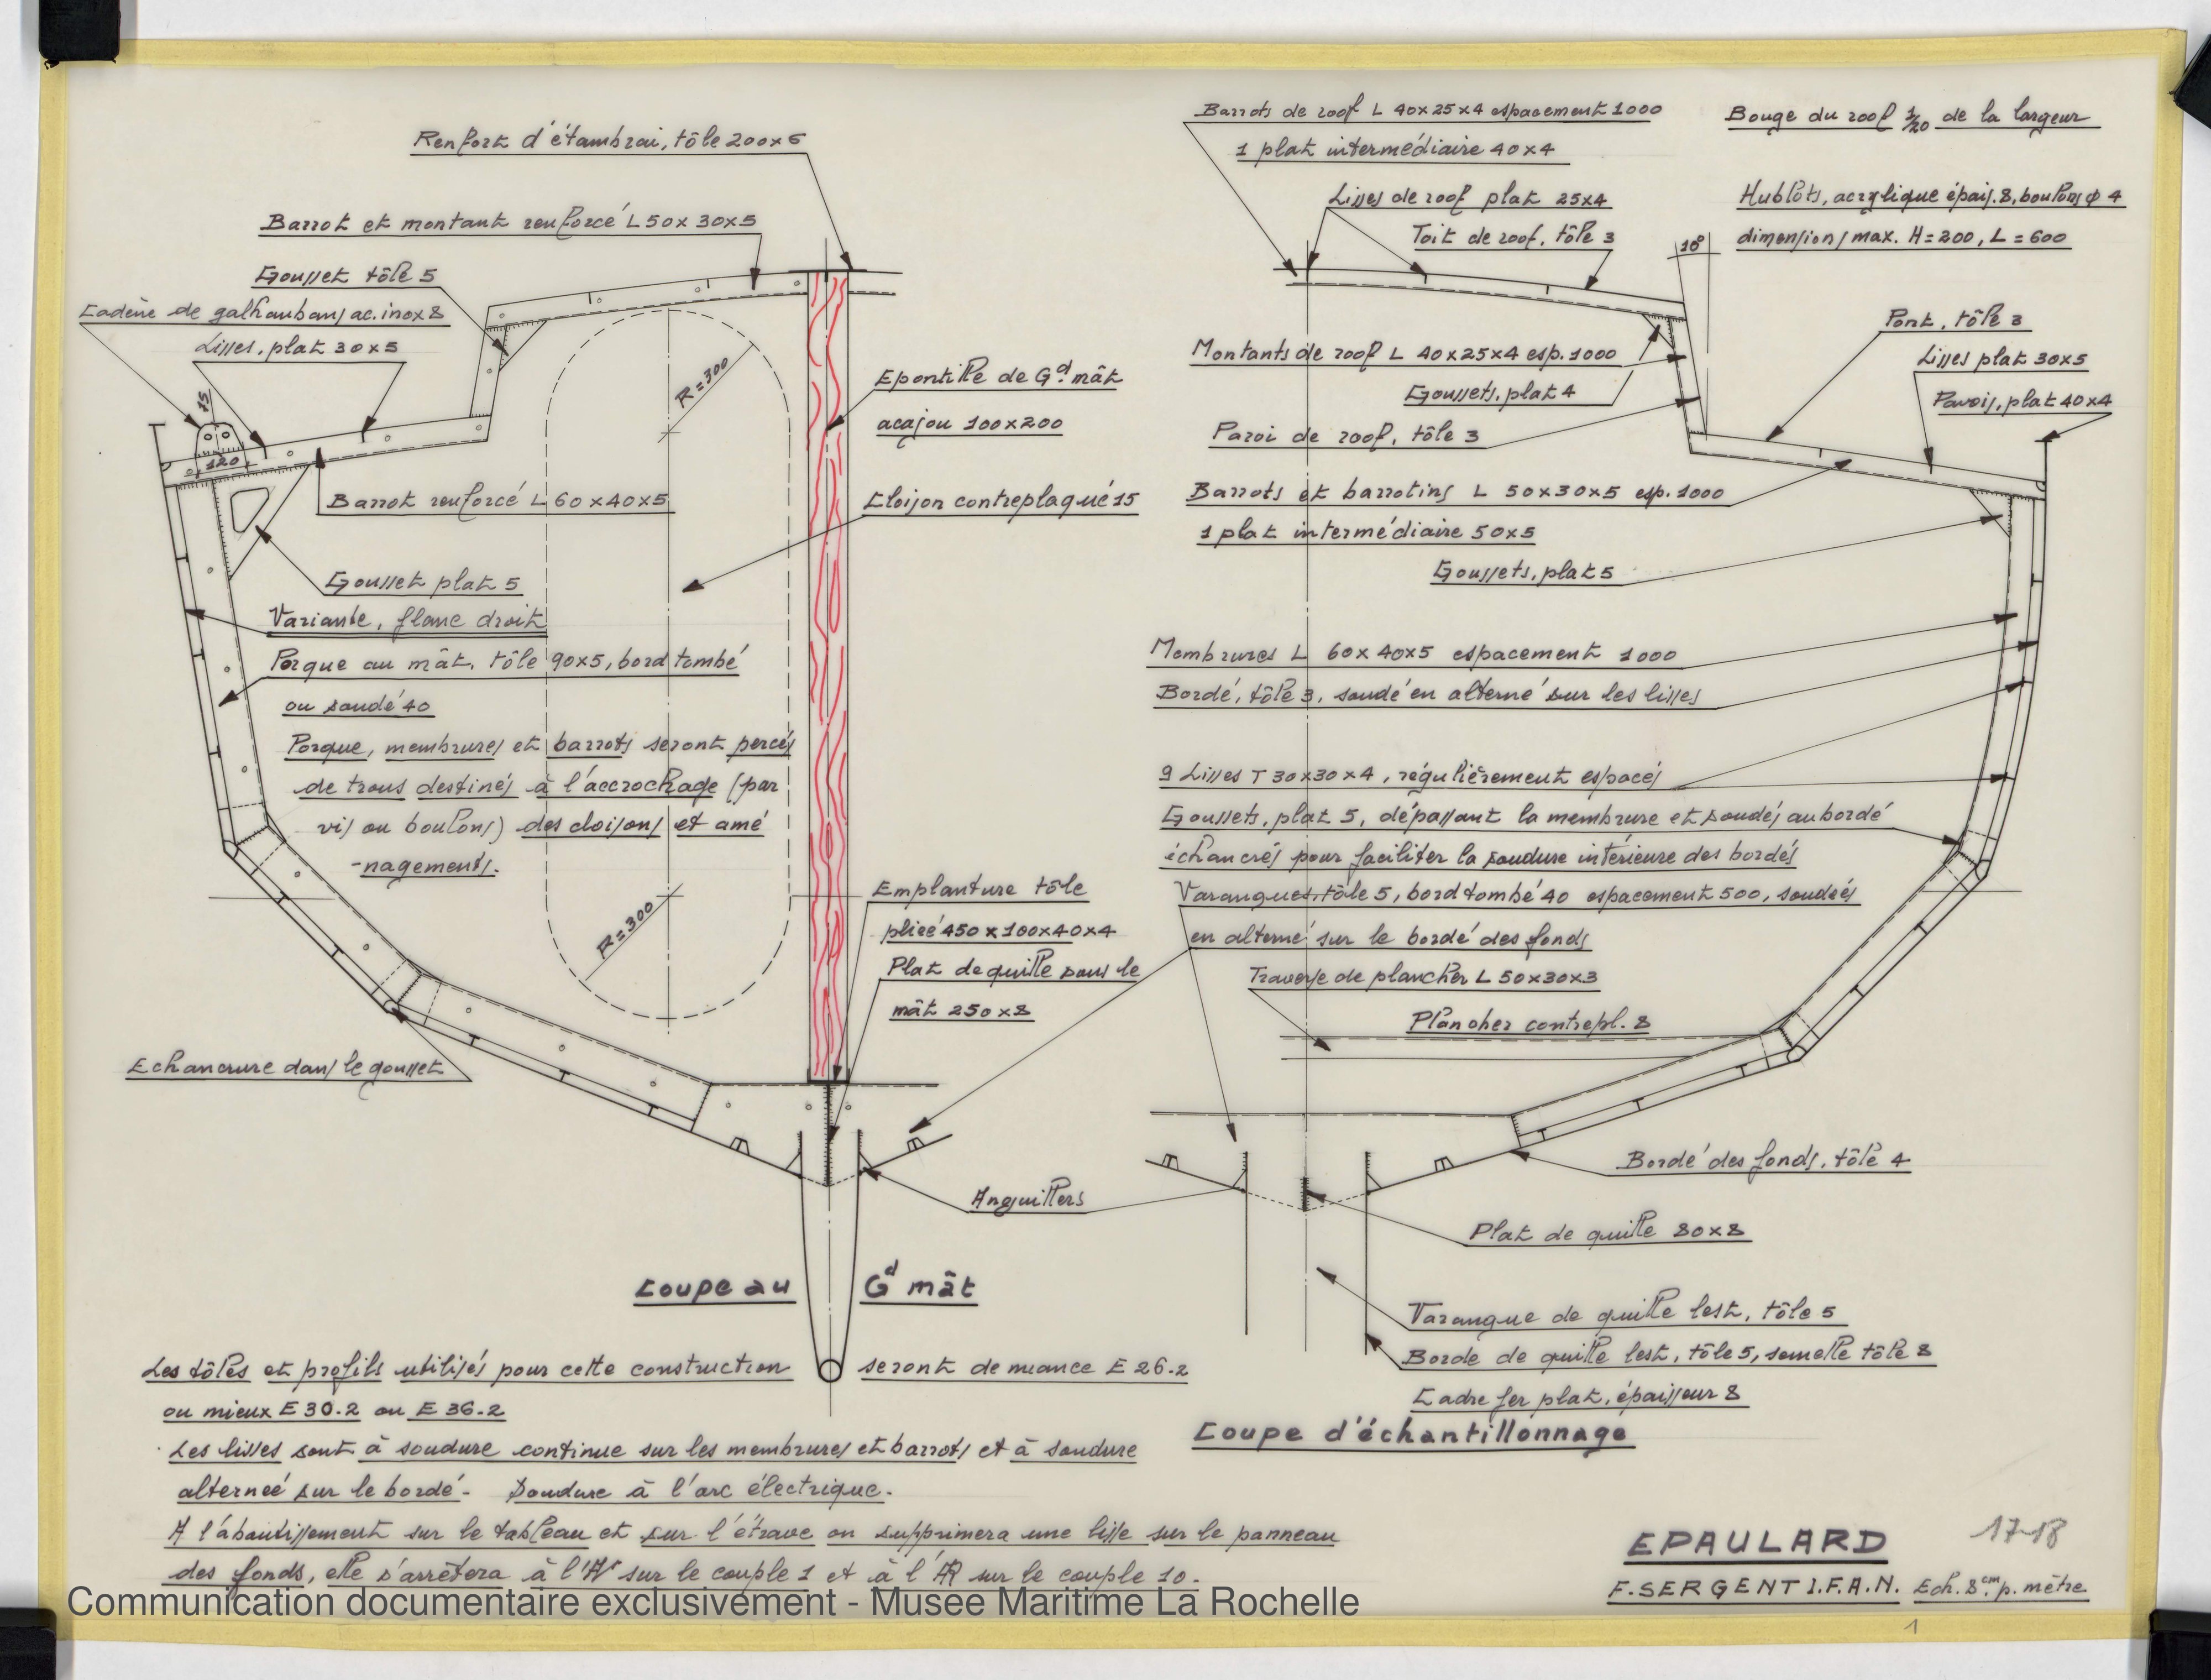 Renfort d'étambrai, tôle 200x5
Barrot et montant renforcé L 50x30x5
Gousset tôle 5
Cadène de galhaubans ac. inox 8
Lisses, plat 30x5
15
120
R=300
Epontille de Gd mât
acajou 100x200
Barrot renforcé L 60x40x5
Cloison contreplaqué 15
Gousset plat 5
Variante, flanc droit
Porque au mât, tôle 90x5, bord tombé
ou soudé 40
Porque, membrures et barrots seront percés
de trous destinés à l'accrochage (par
vis ou boulons) des cloisons et amé
-nagements.
R=300
Emplanture tôle
pliée 450x100x40x4
Plat de quille sous le
mât 250x8
Echancrure dans le gousset
Anguillers
Coupe au Gd mât
Barrots de roof L 40x25x4 espacement 1000
1 plat intermédiaire 40x4
Bouge du roof 1/20 de la largeur
Lisses de roof plat 25x4
Toit de roof, tôle 3
Hublots, acrylique épais. 8, boulons ϕ 4
dimensions max. H=200, L=600
10°
Pont, tôle 3
Lisses plat 30x5
Pavois, plat 40x4
Montants de roof L 40x25x4 esp. 1000
Goussets, plat 4
Paroi de roof, tôle 3
Barrots et barrotins L 50x30x5 esp. 1000
1 plat intermédiaire 50x5
Goussets, plat 5
Membrures L 60x40x5 espacement 1000
Bordé, tôle 3, soudé en alterné sur les lisses
9 Lisses T 30x30x4, régulièrement espacés
Goussets, plat 5, dépassant la membrure et soudés au bordé
échancrés pour faciliter la soudure intérieure des bordés
Varangues, tôle 5, bord tombé 40 espacement 500, soudées
en alterné sur le bordé des fonds
Traverse de plancher L 50x30x3
Plancher contrepl. 8
Bordé des fonds, tôle 4
Plat de quille 80x8
Varangue de quille lest, tôle 5
Borde de quille lest, tôle 5, semelle tôle 8
Cadre fer plat, épaisseur 8
Coupe d'échantillonnage
Les tôles et profils utilisés pour cette construction seront de nuance E 26-2
ou mieux E 30-2 ou E 36-2
Les lisses sont à soudure continue sur les membrures et barrots et à soudure
alterneé sur le bordé - Soudure à l'arc électrique.
A l'aboutissement sur le tableau et sur l'étrave on supprimera une lisse sur le panneau
des fonds, elle s'arrêtera à l'AV sur le couple 1 et à l'AR sur le couple 10.
EPAULARD
17-18
F. SERGENT I.F.A.N. Ech. 8 cm p. mètre
1
Communication documentaire exclusivement - Musee Maritime La Rochelle